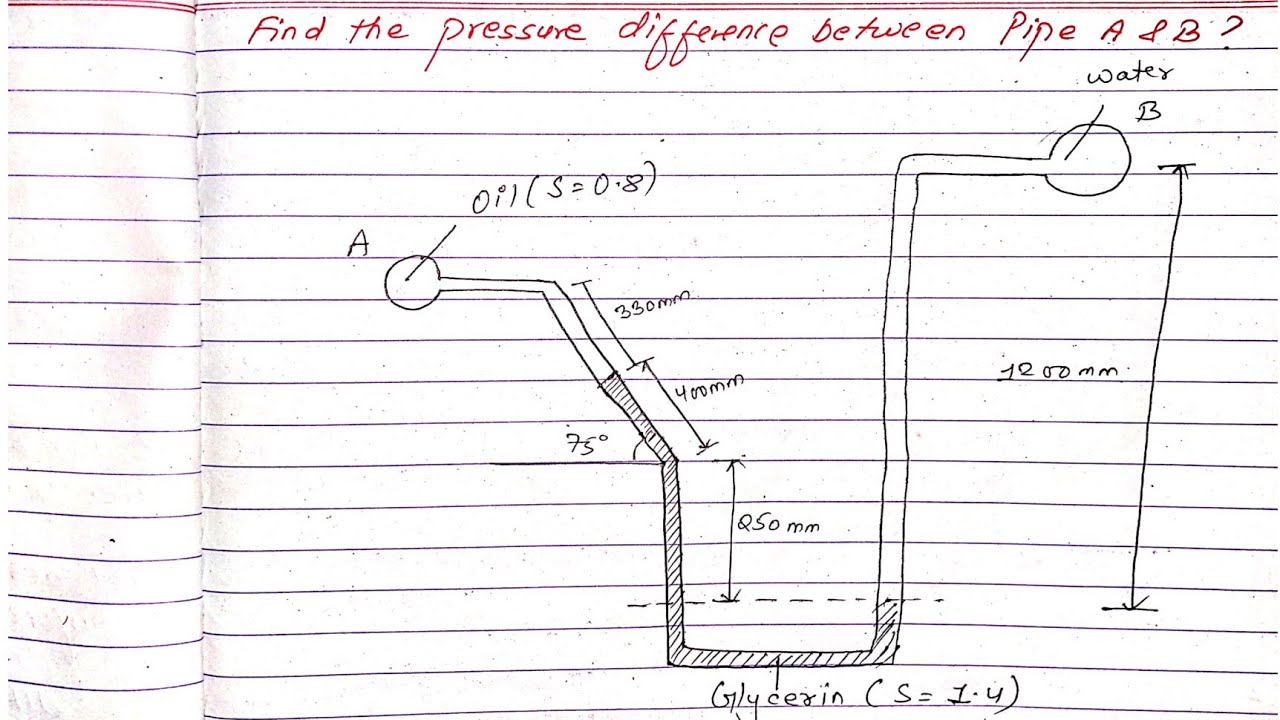 Find the pressure difference between Pipe A & B?
water
B
Oil (S=0.8)
A
330mm
400mm
1200mm.
75°
250mm
Glycerin (S= 1.4)